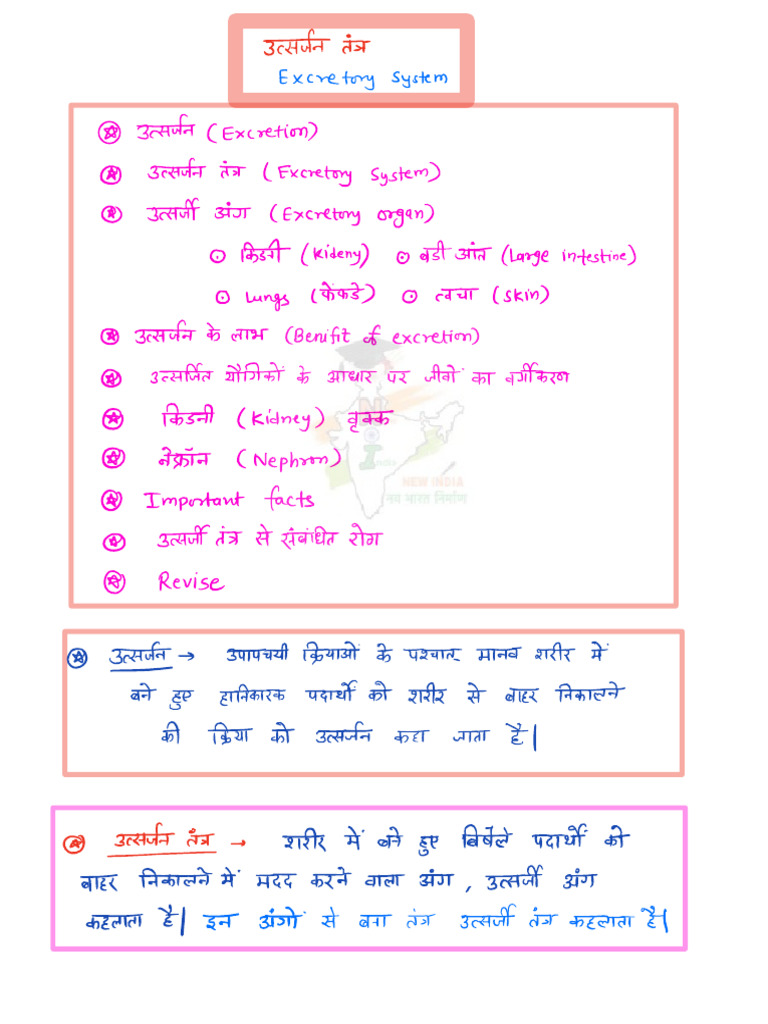 उत्सर्जन तंत्र
Excretory System
उत्सर्जन (Excretion)
उत्सर्जन तंत्र (Excretory System)
उत्सर्जी अंग (Excretory organ)
किडनी (Kideny) बडी आंत (Large intestine)
Lungs (फेंफडे) त्वचा (Skin)
उत्सर्जन के लाभ (Benifit of excretion)
उत्सर्जित यौगिकों के आधार पर जीवों का वर्गीकरण
किडनी (Kidney) वृक्क
नेफ्रॉन (Nephron)
NEW INDIA
Important facts
नव भारत निर्माण
उत्सर्जी तंत्र से संबंधित रोग
Revise
उत्सर्जन → उपापचयी क्रियाओं के पश्चात् मानव शरीर में
बने हुए हानिकारक पदार्थो को शरीर से बाहर निकालने
की क्रिया को उत्सर्जन कहा जाता है|
उत्सर्जन तंत्र → शरीर में बने हुए विषैले पदार्थो को
बाहर निकालने में मदद करने वाला अंग, उत्सर्जी अंग
कहलाता है| इन अंगों से बना तंत्र उत्सर्जी तंत्र कहलाता है|